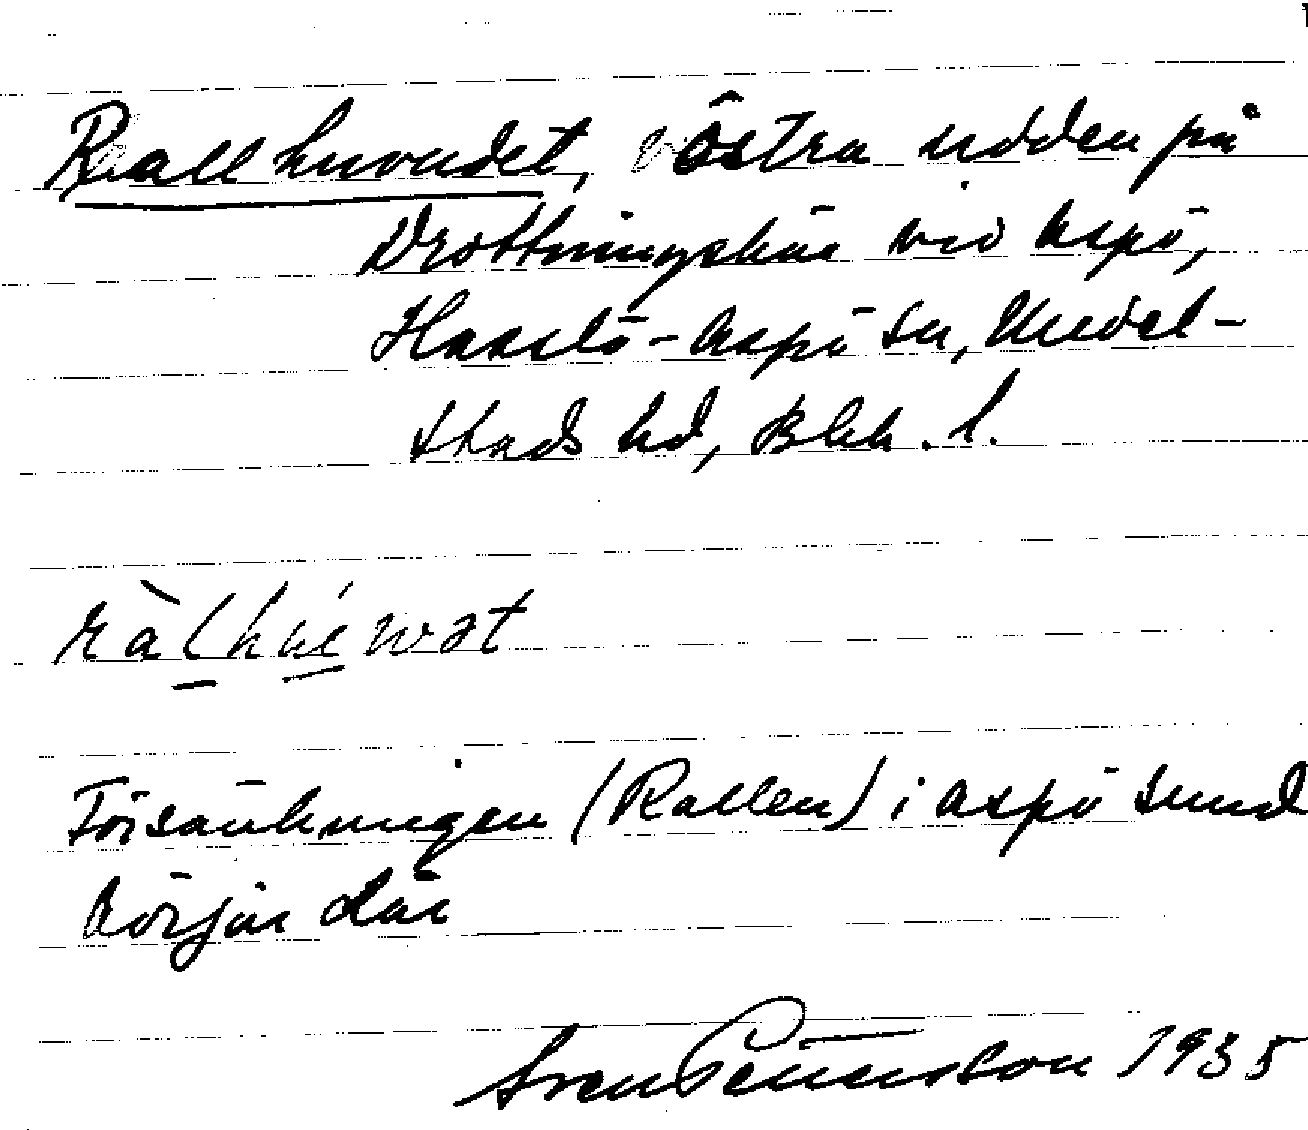 Rallhuvudet, östra udden på
Drottningskär vid Aspö,
Hasslö-Aspö sn, Medel-
stads hd, Blek. l.
Försänkningen (Rallen) i Aspö sund
börjar där
Sven 1935